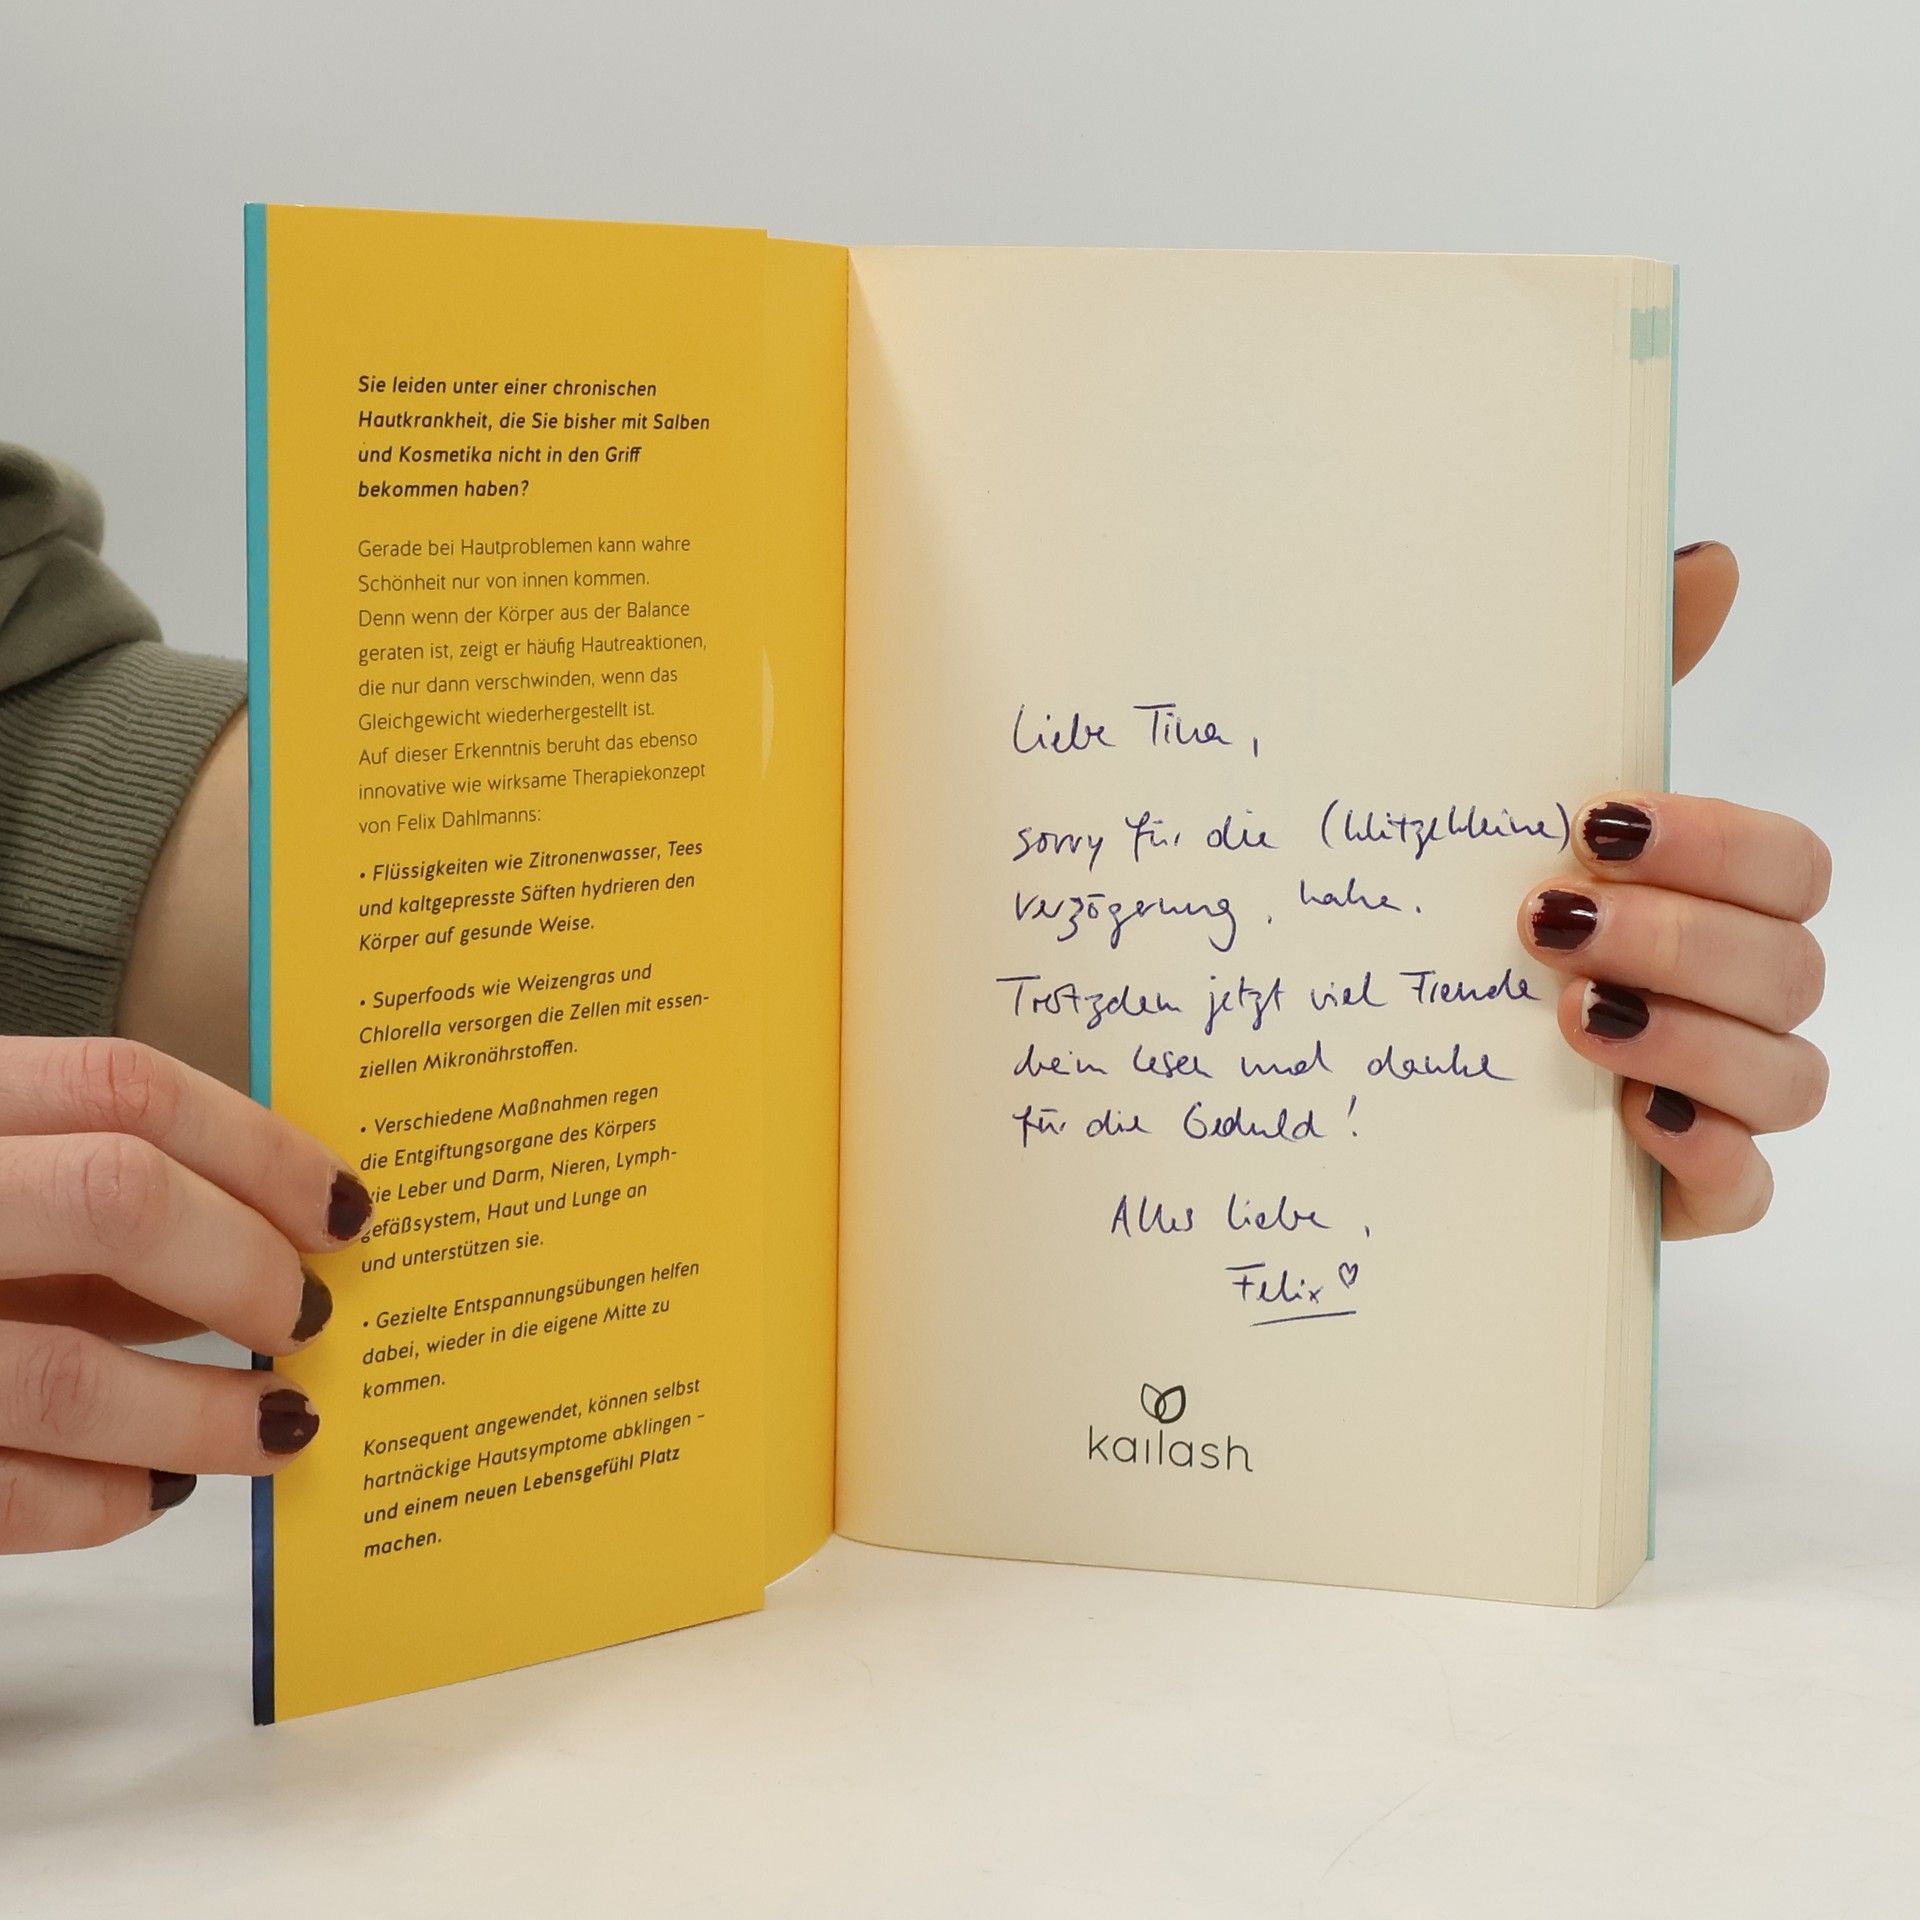 Sie leiden unter einer chronischen
Hautkrankheit, die Sie bisher mit Salben
und Kosmetika nicht in den Griff
bekommen haben?
Gerade bei Hautproblemen kann wahre
Schönheit nur von innen kommen.
Denn wenn der Körper aus der Balance
geraten ist, zeigt er häufig Hautreaktionen,
die nur dann verschwinden, wenn das
Gleichgewicht wiederhergestellt ist.
Auf dieser Erkenntnis beruht das ebenso
innovative wie wirksame Therapiekonzept
von Felix Dahlmanns:
• Flüssigkeiten wie Zitronenwasser, Tees
und kaltgepresste Säften hydrieren den
Körper auf gesunde Weise.
• Superfoods wie Weizengras und
Chlorella versorgen die Zellen mit essen-
ziellen Mikronährstoffen.
• Verschiedene Maßnahmen regen
die Entgiftungsorgane des Körpers
wie Leber und Darm, Nieren, Lymph-
gefäßsystem, Haut und Lunge an
und unterstützen sie.
• Gezielte Entspannungsübungen helfen
dabei, wieder in die eigene Mitte zu
kommen.
Konsequent angewendet, können selbst
hartnäckige Hautsymptome abklingen –
und einem neuen Lebensgefühl Platz
machen.
Liebe Tina,
sorry für die (klitzekleine)
Verzögerung, hahe.
Trotzdem jetzt viel Freude
beim Lesen und danke
für die Geduld!
Alles Liebe,
Felix ♡
kailash